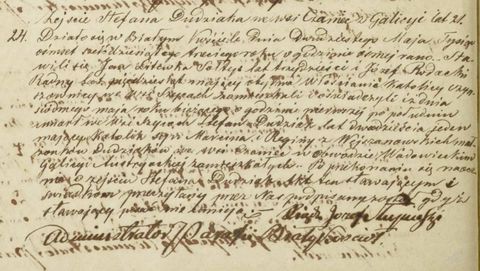 Zejście Stefana Dudziaka ze wsi Czaniec w Galicyi lat 21.
24. Działo się w Białym Kościele Dnia Dwudziestego Maja Tysiąc
ośmset siedziesiątego trzeciego roku o godzinie ósmej rano. Sta
wili się Jan Bitówka Sołtys lat trzydzieści i Józef Rudecki
Radny lat pięćdziesiąt mający obydwa Włościanie katolicy czyn
szownicy we wsi Szycach zamieszkali i oświadczyli iż dnia
siódmego maja roku bieżącego o godzinie pierwszej po południu
zmarł we wsi Szycach Stefan Dudziak lat dwadzieścia jeden
mający katolik syn Marcina i Reginy z Wójcianowskich mał
żonków Dudziaków we wsi Czaniec w Obwodzie Wadowickim
Galicyi Austryackiej zamieszkałych. Po przekonaniu się naocz
nie o zejściu Stefana Dudziaka akt ten stawającym i
świadkom przeczytany przez Nas podpisany został gdyż
stawający pisać nie umieją.
Xiądz Józef
Administrator Parafii